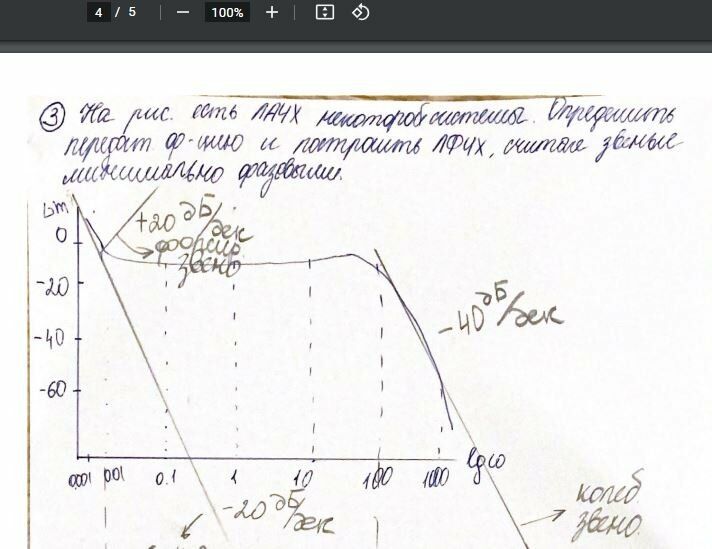 4 / 5
100%
③ На рис. есть ЛАЧХ некоторой системы. Определить
передат ф-цию и построить ЛФЧХ, считая звенья
минимально фазовыми.
Lm
+20 дБ/дек
форсир
звено
0
-20
-40
-60
-40 дБ/дек
0.001 0.01 0.1 1 10 100 1000 lgω
-20 дБ/дек
колеб.
звено.